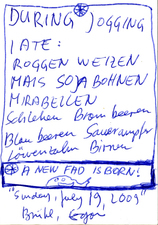 DURING JOGGING
I ATE:
ROGGEN WEIZEN
MAIS SOJABOHNEN
MIRABELLEN
Schlehen Brombeeren
Blaubeeren Sauerampfer
Löwenzahn Birnen
A NEW FAD IS BORN!
"Sunday, July 19, 2009"
Brühl,